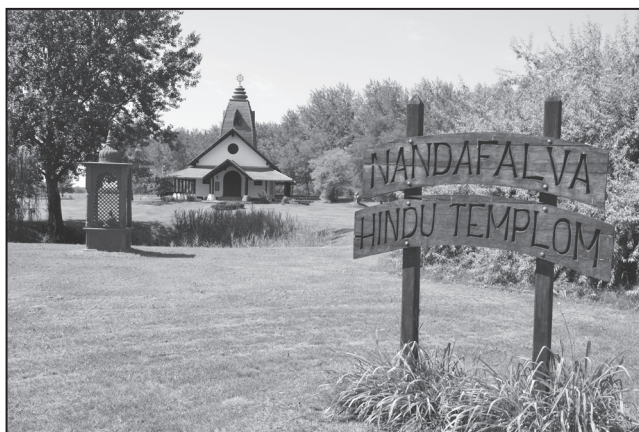 NANDAFALVA
HINDU TEMPLOM